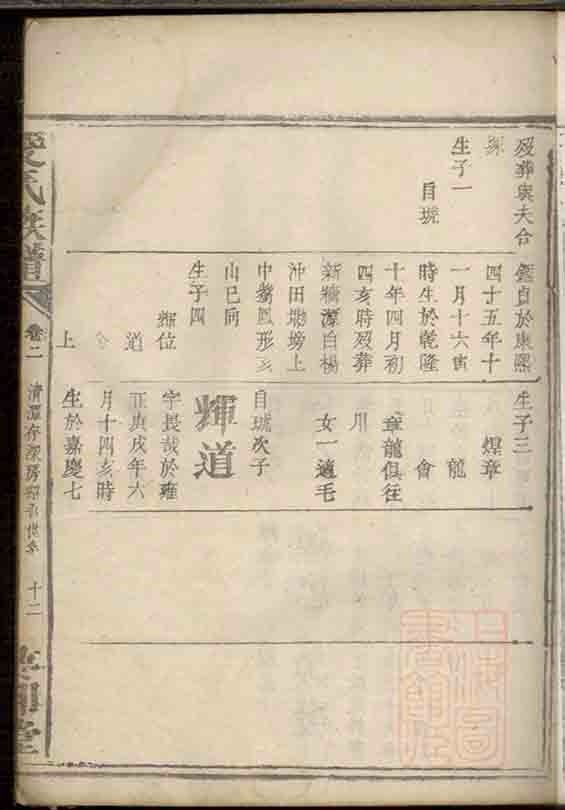 歿葬與夫合
生子一
自琥
鑑貞於康熙
四十五年十
一月十六寅
時生於乾隆
十年四月初
四亥時歿葬
新糖源白楊
沖田塝塝上
中鸞鳳形亥
山巳向
生子四
輝位
道
上
生子三
煋章
龍
會
章龍俱往
川
女一適毛
自琥次子
輝道
字長哉於雍
正庚戌年六
月十四亥時
生於嘉慶七
氏族譜
卷二
十二